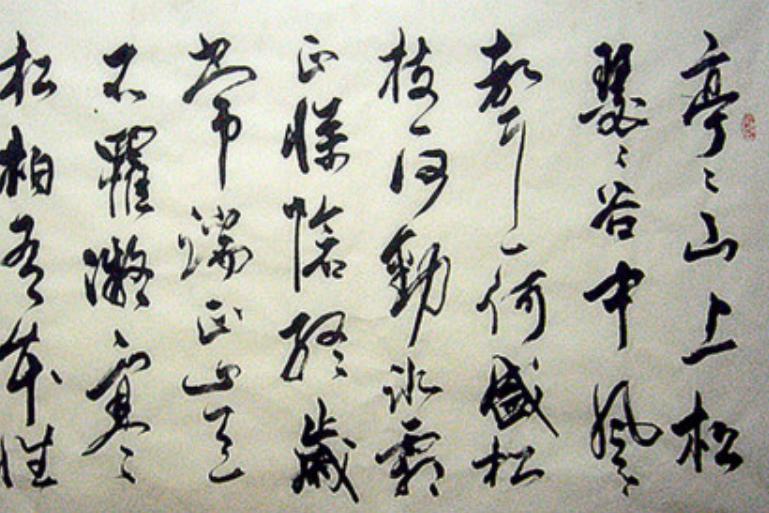 亭〻山上松
瑟〻谷中風〻
聲一何盛松
枝一何勁冰霜
正慘愴終歲
常端正豈
不罹凝寒
松柏有本性